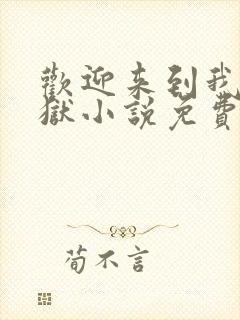 歡迎来到我
獄小說免費
荀不言